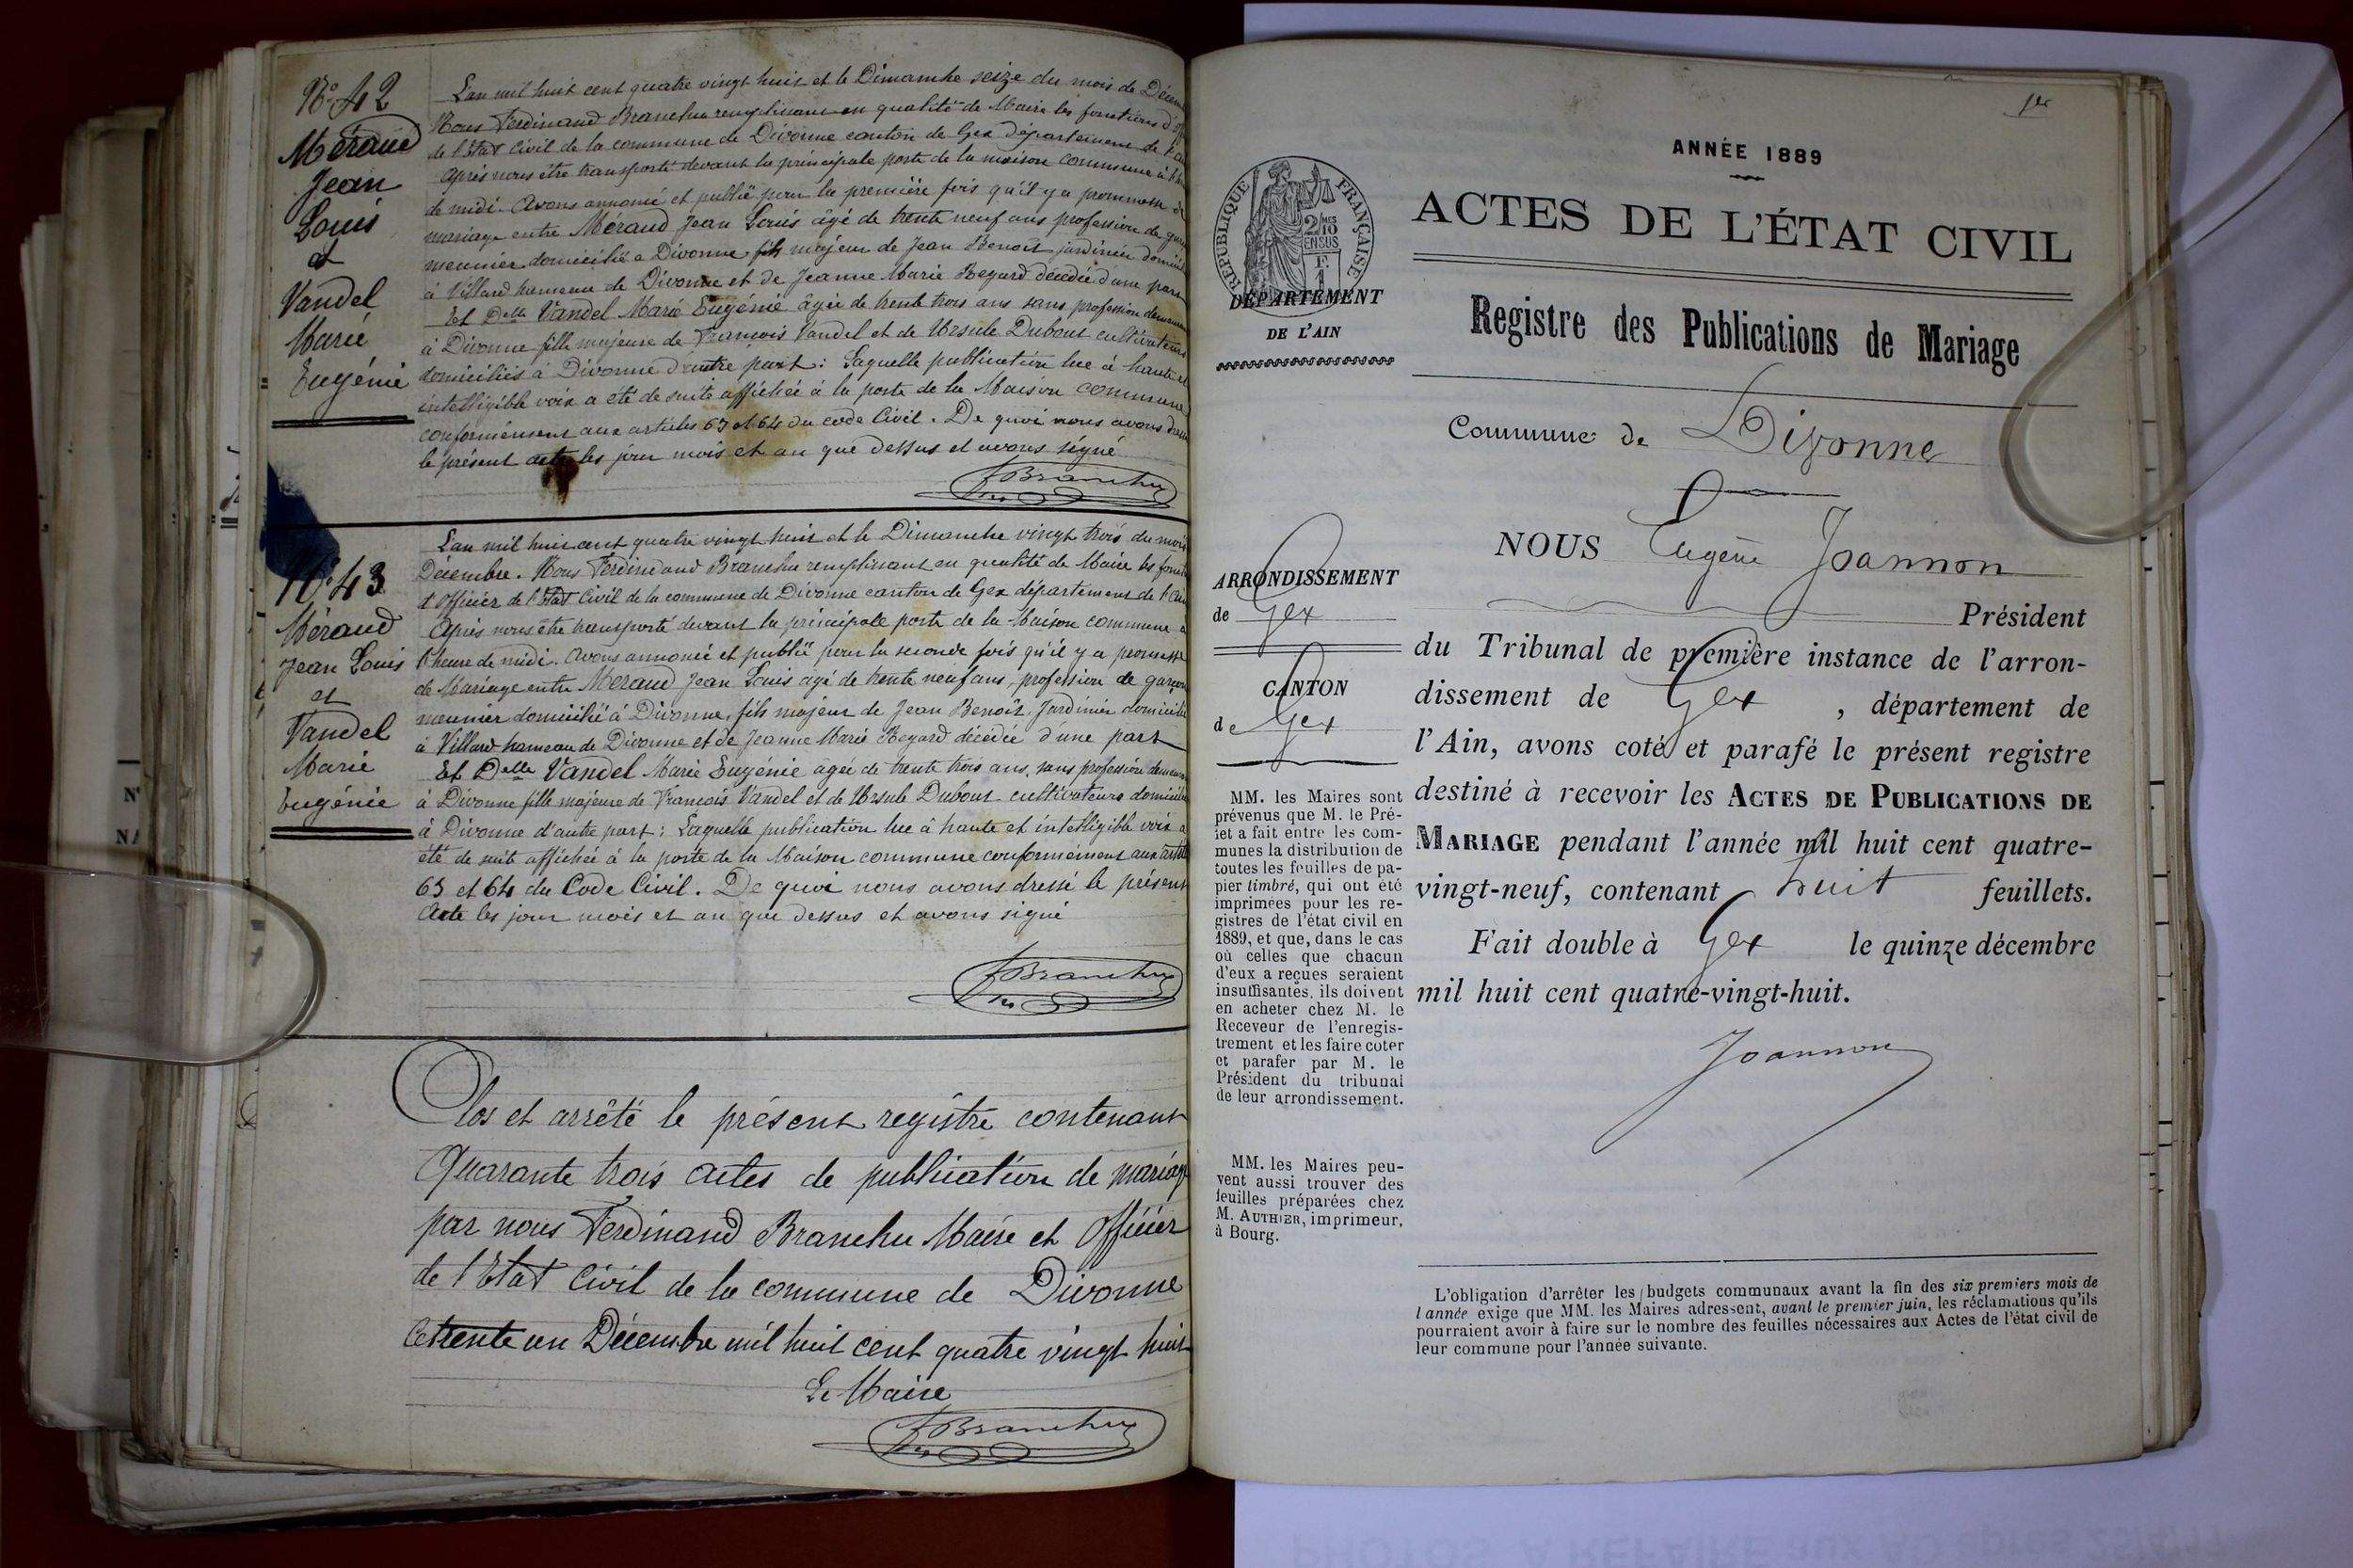 N° 42
Méraud
Jean
Louis
et
Vandel
Marie
Eugénie
L'an mil huit cent quatre vingt huit et le Dimanche seize du mois de Décem
Nous Ferdinand Branchu remplissant en qualité de Maire les fonctions d'off
de l'Etat Civil de la commune de Divonne canton de Gex département de l'Ain
Après nous être transporté devant la principale porte de la maison commune à l'h
de midi. Avons annoncé et publié pour la première fois qu'il y a promesse de
mariage entre Méraud Jean Louis âgé de trente neuf ans profession de gar
meunier domicilié a Divonne, fils majeur de Jean Benoit jardinier domici
à Villard hameau de Divonne et de Jeanne Marie Regard décédée d'une part
Et Delle Vandel Marie Eugénie âgée de trente trois ans sans profession demeu
à Divonne fille majeure de François Vandel et de Ursule Dubout cultivateurs
domiciliés à Divonne d'autre part : Laquelle publication lue à haute et
intelligible voix a été de suite affichée à la porte de la Maison commune
conformément aux articles 63 et 64 du code Civil. De quoi nous avons dres
le présent acte les jour mois et an que dessus et avons signé
F Branchu
N° 43
Méraud
Jean Louis
et
Vandel
Marie
Eugénie
L'an mil huit cent quatre vingt huit et le Dimanche vingt trois du mois
Décembre. Nous Ferdinand Branchu remplissant en qualité de Maire les fonct
d'Officier de l'Etat Civil de la commune de Divonne canton de Gex département de l'Ain
Après nous être transporté devant la principale porte de la Maison commune à
l'heure de midi. Avons annoncé et publié pour la seconde fois qu'il y a promesse
de Mariage entre Meraud Jean Louis agé de trente neuf ans, profession de garçon
meunier domicilié à Divonne, fils majeur de Jean Benoit, Jardinier domicilié
à Villard hameau de Divonne et de Jeanne Marie Regard décédée d'une part
Et Delle Vandel Marie Eugénie agée de trente trois ans, sans profession demeu
à Divonne fille majeure de François Vandel et de Ursule Dubout cultivateurs domicili
à Divonne d'autre part : Laquelle publication lue à haute et intelligible voix a
été de suite affichée à la porte de la Maison commune conformément aux articl
63 et 64 du Code Civil. De quoi nous avons dressé le présent
Acte les jour mois et an que dessus et avons signé
F Branchu
Clos et arrêté le présent registre contenant
Quarante trois actes de publication de mariage
par nous Ferdinand Branchu Maire et Officier
de l'Etat Civil de la commune de Divonne
Ce trente un Décembre mil huit cent quatre vingt huit
Le Maire
F Branchu
ANNÉE 1889
ACTES DE L'ÉTAT CIVIL
Registre des Publications de Mariage
Commune de Divonne
NOUS Eugène Joannon
Président
du Tribunal de première instance de l'arron-
dissement de Gex, département de
l'Ain, avons coté et parafé le présent registre
destiné à recevoir les ACTES DE PUBLICATIONS DE
MARIAGE pendant l'année mil huit cent quatre-
vingt-neuf, contenant huit feuillets.
Fait double à Gex le quinze décembre
mil huit cent quatre-vingt-huit.
Joannon
RÉPUBLIQUE FRANÇAISE
2/10 MES
EN SUS
F
1
DÉPARTEMENT
DE L'AIN
ARRONDISSEMENT
de Gex
CANTON
de Gex
MM. les Maires sont
prévenus que M. le Pré-
fet a fait entre les com-
munes la distribution de
toutes les feuilles de pa-
pier timbré, qui ont été
imprimées pour les re-
gistres de l'état civil en
1889, et que, dans le cas
où celles que chacun
d'eux a reçues seraient
insuffisantes, ils doivent
en acheter chez M. le
Receveur de l'enregis-
trement et les faire coter
et parafer par M. le
Président du tribunal
de leur arrondissement.
MM. les Maires peu-
vent aussi trouver des
feuilles préparées chez
M. AUTHIER, imprimeur,
à Bourg.
L'obligation d'arrêter les budgets communaux avant la fin des six premiers mois de
l'année exige que MM. les Maires adressent, avant le premier juin, les réclamations qu'ils
pourraient avoir à faire sur le nombre des feuilles nécessaires aux Actes de l'état civil de
leur commune pour l'année suivante.